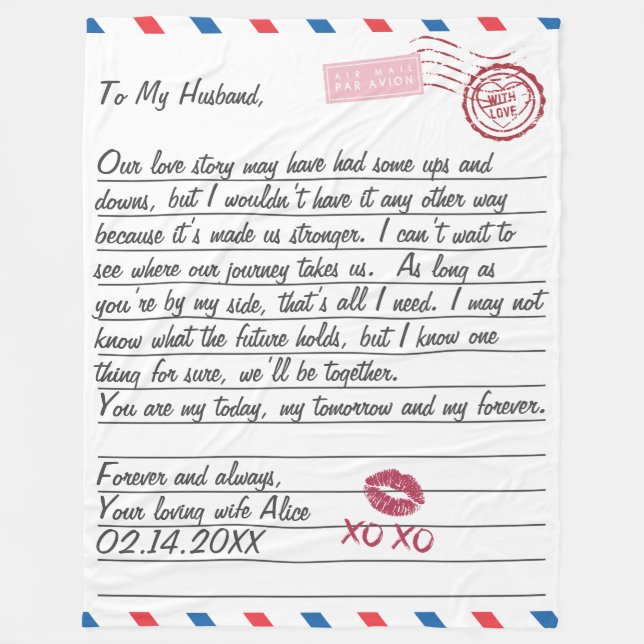 AIR MAIL
PAR AVION
WITH
LOVE
To My Husband,
Our love story may have had some ups and
downs, but I wouldn't have it any other way
because it's made us stronger. I can't wait to
see where our journey takes us.  As long as
you're by my side, that's all I need. I may not
know what the future holds, but I know one
thing for sure, we'll be together.
You are my today, my tomorrow and my forever.
Forever and always,
Your loving wife Alice
02.14.20XX
XO XO